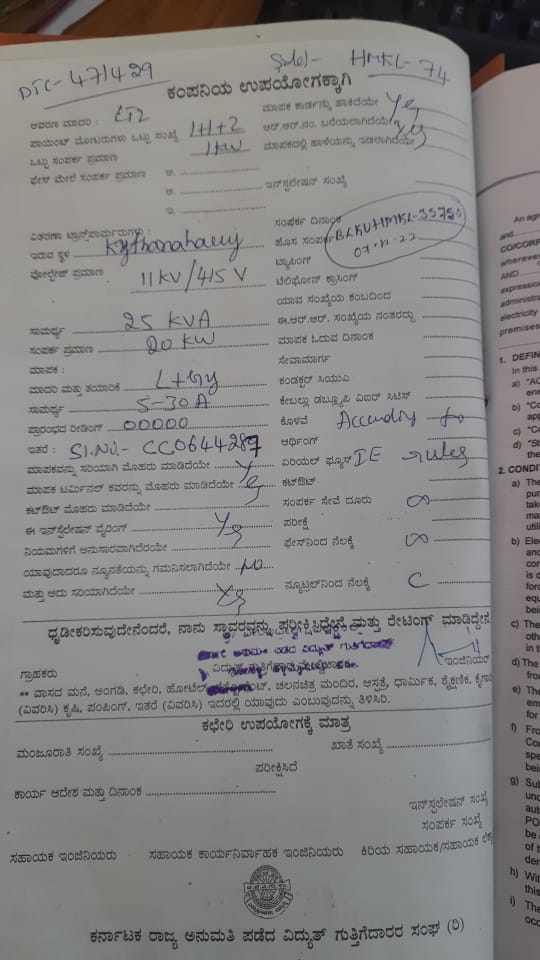 DTC-47/429
HMKL-74
ಕಂಪನಿಯ ಉಪಯೋಗಕ್ಕಾಗಿ
ಆವರಣ ಮಾದರಿ :
ಮಾಪಕ ಕಾರ್ಡನ್ನು ಹಾಕಿದೆಯೇ Yes
ಪಾಯಿಂಟ್ ಮೋಟರುಗಳು ಒಟ್ಟು ಸಂಖ್ಯೆ 1+1+2
ಆರ್.ಆರ್.ನಂ. ಬರೆಯಲಾಗಿದೆಯೇ Yes
ಒಟ್ಟು ಸಂಪರ್ಕ ಪ್ರಮಾಣ 1KW
ಮಾಪಕದಲ್ಲಿ ಹಾಳೆಯನ್ನು ಇಡಲಾಗಿದೆಯೇ
ಫೇಸ್ ಮೇಲೆ ಸಂಪರ್ಕ ಪ್ರಮಾಣ ಅ.
ಆ.
ಇನ್‌ಸ್ಟಲೇಷನ್ ಸಂಖ್ಯೆ
ಇ.
ವಿತರಣಾ ಟ್ರಾನ್ಸ್‌ಫಾರ್ಮರುಗಳು :
ಸಂಪರ್ಕ ದಿನಾಂಕ
ಇರುವ ಸ್ಥಳ
ಹೊಸ ಸಂಪರ್ಕ BLKUHMKL-35750
07-12-22
ಟ್ಯಾಪಿಂಗ್
ವೋಲ್ಟೇಜ್ ಪ್ರಮಾಣ 11KV/415 V
ಟೆಲಿಫೋನ್ ಕ್ರಾಸಿಂಗ್
ಯಾವ ಸಂಖ್ಯೆಯ ಕಂಬದಿಂದ
ಸಾಮರ್ಥ್ಯ 25 KVA
ಈ.ಆರ್.ಆರ್. ಸಂಖ್ಯೆಯ ನಂತರದ್ದು
ಸಂಪರ್ಕ ಪ್ರಮಾಣ 20 KW
ಮಾಪಕ ಓದುವ ದಿನಾಂಕ
ಮಾಪಕ :
ಸೇವಾಮಾರ್ಗ
ಮಾದರಿ ಮತ್ತು ತಯಾರಿಕೆ L+Gy
ಕಂಡಕ್ಟರ್ ಸಿಯುಎ
ಸಾಮರ್ಥ್ಯ 5-30A
ಕೇಬಲ್ಲು ಡಬ್ಲ್ಯೂಪಿ ವಿಐಆರ್ ಸಿಟಿಸ್
ಪ್ರಾರಂಭದ ರೀಡಿಂಗ್ 00000
ಕೊಳವೆ According to
ಇತರೆ : Sl.No:- CC0644287
ಅರ್ಥಿಂಗ್
ಮಾಪಕವನ್ನು ಸರಿಯಾಗಿ ಮೊಹರು ಮಾಡಿದೆಯೇ
ಏರಿಯಲ್ ಫ್ಯೂಸ್ IE rules
ಮಾಪಕ ಟರ್ಮಿನಲ್ ಕವರನ್ನು ಮೊಹರು ಮಾಡಿದೆಯೇ
ಕಟ್‌ಔಟ್
ಕಟ್‌ಔಟ್ ಮೊಹರು ಮಾಡಿದೆಯೇ
ಸಂಪರ್ಕ ಸೇವೆ ದೂರು ∞
ಈ ಇನ್‌ಸ್ಟಲೇಷನ್ ವೈರಿಂಗ್ Yes
ಪರೀಕ್ಷೆ
ನಿಯಮಗಳಿಗೆ ಅನುಸಾರವಾಗಿದೆಯೇ
ಫೇಸ್‌ನಿಂದ ನೆಲಕ್ಕೆ ∞
ಯಾವುದಾದರೂ ನ್ಯೂನತೆಯನ್ನು ಗಮನಿಸಲಾಗಿದೆಯೇ No
ಮತ್ತು ಅದು ಸರಿಯಾಗಿದೆಯೇ Yes
ನ್ಯೂಟ್ರಲ್‌ನಿಂದ ನೆಲಕ್ಕೆ
ಧೃಡೀಕರಿಸುವುದೇನೆಂದರೆ, ನಾನು ಸ್ಥಾವರವನ್ನು ಪರೀಕ್ಷಿಸಿದ್ದೇನೆ ಮತ್ತು ರೇಟಿಂಗ್ ಮಾಡಿದ್ದೇನೆ
ಗ್ರಾಹಕರು
ಇಂಜಿನಿಯರ್
** ವಾಸದ ಮನೆ, ಅಂಗಡಿ, ಕಛೇರಿ, ಹೋಟೆಲ್ ಚಲನಚಿತ್ರ ಮಂದಿರ, ಆಸ್ಪತ್ರೆ, ಧಾರ್ಮಿಕ, ಶೈಕ್ಷಣಿಕ,
(ವಿವರಿಸಿ) ಕೃಷಿ, ಪಂಪಿಂಗ್, ಇತರೆ (ವಿವರಿಸಿ) ಇದರಲ್ಲಿ ಯಾವುದು ಎಂಬುವುದನ್ನು ತಿಳಿಸಿರಿ.
ಕಛೇರಿ ಉಪಯೋಗಕ್ಕೆ ಮಾತ್ರ
ಮಂಜೂರಾತಿ ಸಂಖ್ಯೆ
ಖಾತೆ ಸಂಖ್ಯೆ
ಪರೀಕ್ಷಿಸಿದೆ
ಕಾರ್ಯ ಆದೇಶ ಮತ್ತು ದಿನಾಂಕ
ಇನ್‌ಸ್ಟಲೇಷನ್ ಸಂಖ್ಯೆ
ಸಂಪರ್ಕ ಸಂಖ್ಯೆ
ಸಹಾಯಕ ಇಂಜಿನಿಯರು ಸಹಾಯಕ ಕಾರ್ಯನಿರ್ವಾಹಕ ಇಂಜಿನಿಯರು ಕಿರಿಯ ಸಹಾಯಕ/ಸಹಾಯಕ
ಕರ್ನಾಟಕ ರಾಜ್ಯ ಅನುಮತಿ ಪಡೆದ ವಿದ್ಯುತ್ ಗುತ್ತಿಗೆದಾರರ ಸಂಘ (ರಿ)